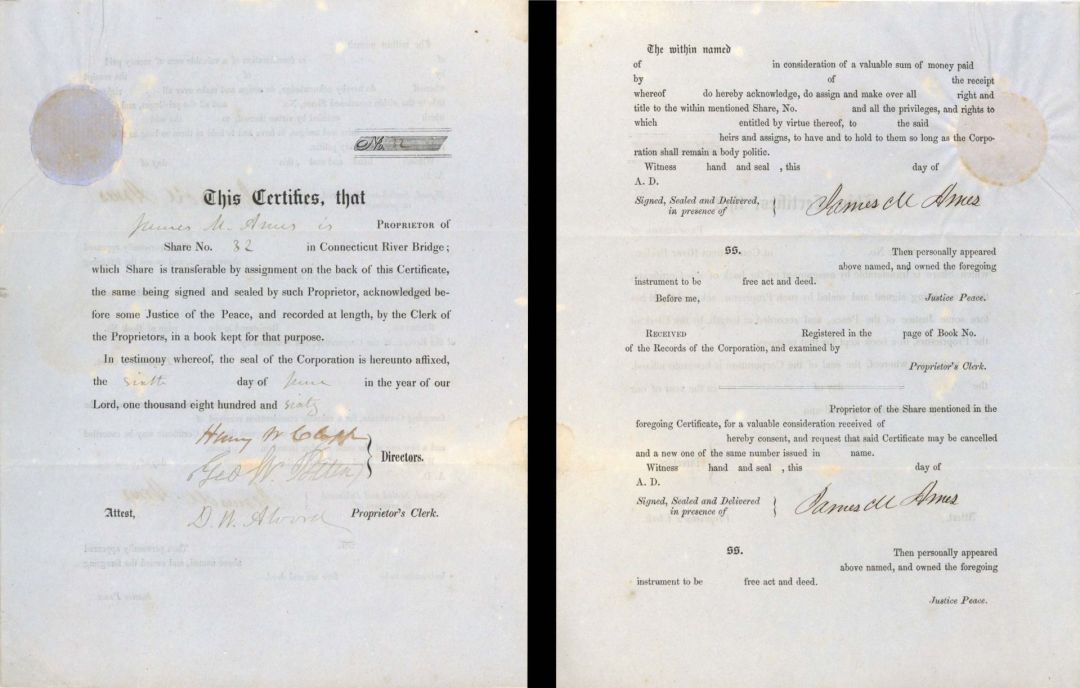 No. 32
This Certifies, that
James M. Ames is PROPRIETOR of
Share No. 32 in Connecticut River Bridge;
which Share is transferable by assignment on the back of this Certificate,
the same being signed and sealed by such Proprietor, acknowledged be-
fore some Justice of the Peace, and recorded at length, by the Clerk of
the Proprietors, in a book kept for that purpose.
In testimony whereof, the seal of the Corporation is hereunto affixed,
the sixth day of June in the year of our
Lord, one thousand eight hundred and sixty
Henry W Clapp
Geo W.
Directors.
Attest, D. W. Alvord Proprietor's Clerk.
The within named
of in consideration of a valuable sum of money paid
by of the receipt
whereof do hereby acknowledge, do assign and make over all right and
title to the within mentioned Share, No. and all the privileges, and rights to
which entitled by virtue thereof, to the said
heirs and assigns, to have and to hold to them so long as the Corpo-
ration shall remain a body politic.
Witness hand and seal , this day of
A. D.
Signed, Sealed and Delivered, James M Ames
in presence of
SS. Then personally appeared
above named, and owned the foregoing
instrument to be free act and deed.
Before me, Justice Peace.
RECEIVED Registered in the page of Book No.
of the Records of the Corporation, and examined by
Proprietor's Clerk.
Proprietor of the Share mentioned in the
foregoing Certificate, for a valuable consideration received of
hereby consent, and request that said Certificate may be cancelled
and a new one of the same number issued in name.
Witness hand and seal , this day of
A. D.
Signed, Sealed and Delivered James M Ames
in presence of
SS. Then personally appeared
above named, and owned the foregoing
instrument to be free act and deed.
Justice Peace.